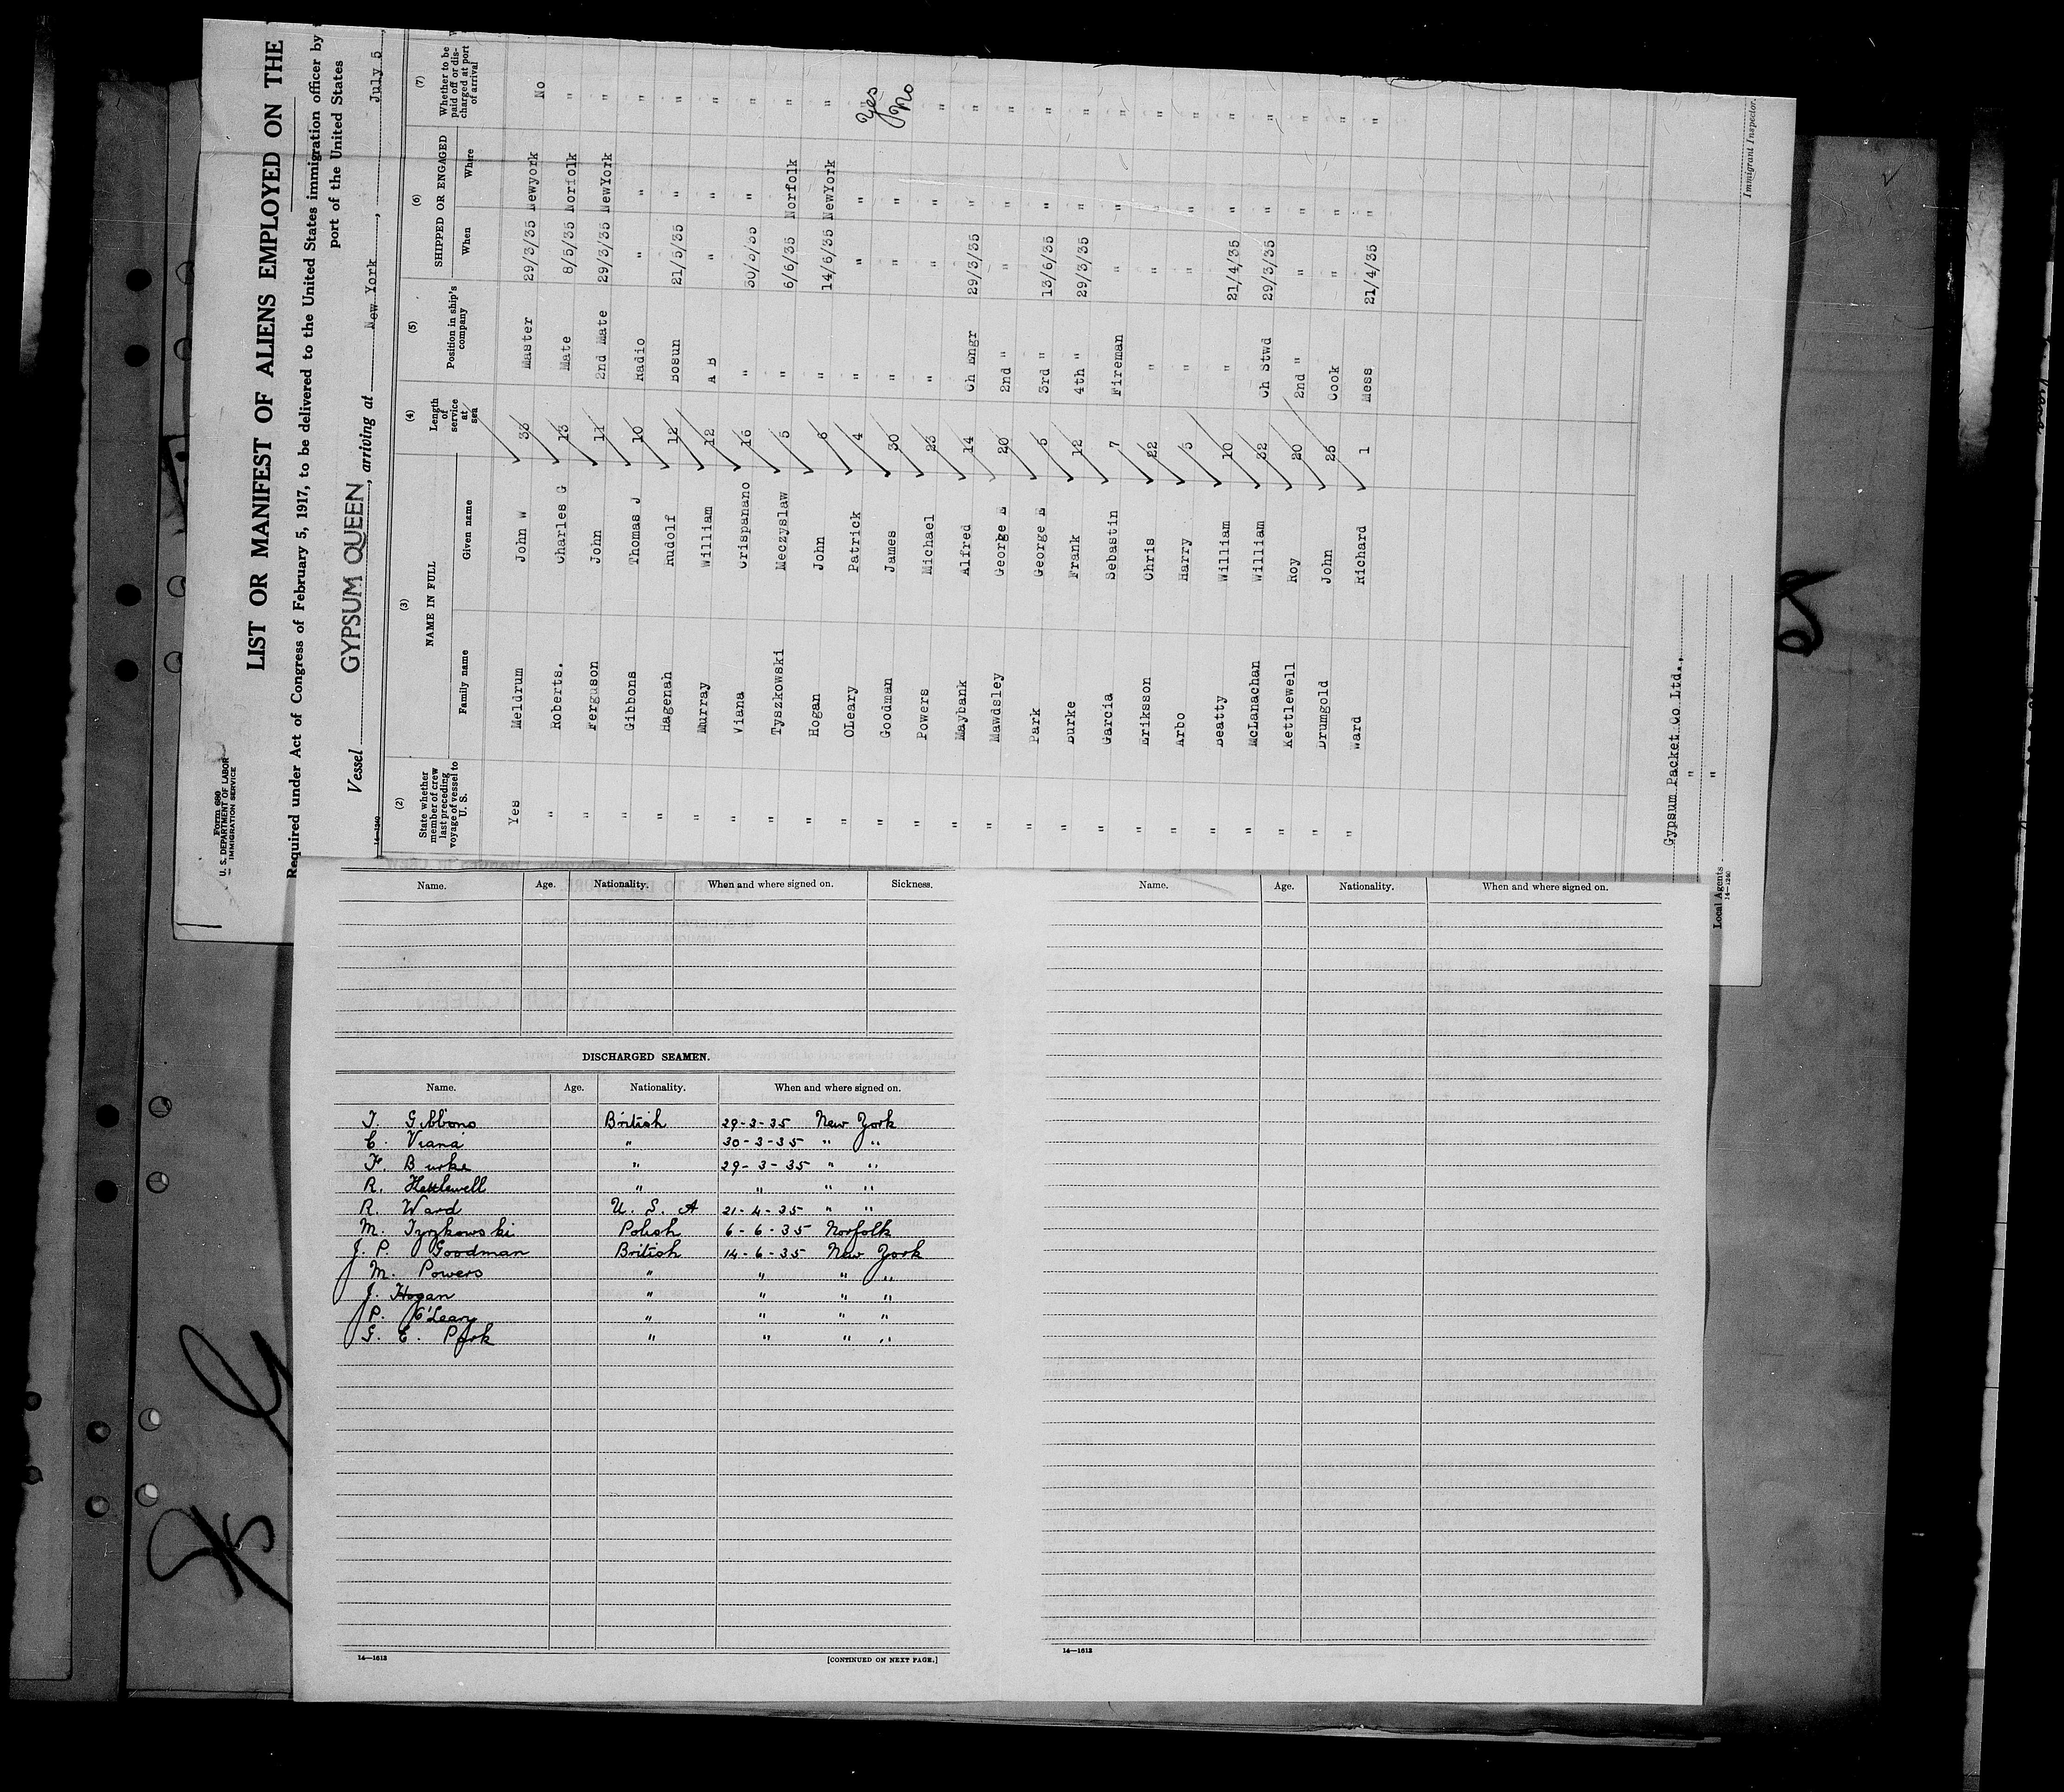 Form 680
U. S. DEPARTMENT OF LABOR
IMMIGRATION SERVICE
LIST OR MANIFEST OF ALIENS EMPLOYED ON THE
Required under Act of Congress of February 5, 1917, to be delivered to the United States immigration officer by
port of the United States
Vessel GYPSUM QUEEN, arriving at New York, July 5,
14—1240
(2) (3) (4) (5) (6) (7)
State whether member of crew last preceding voyage of vessel to U. S. NAME IN FULL Family name Given name Length of service at sea Position in ship's company SHIPPED OR ENGAGED When Where Whether to be paid off or discharged at port of arrival
Yes Meldrum John W 33 Master 29/3/35 Newyork No
" Roberts. Charles G 13 Mate 8/5/35 Norfolk "
" Ferguson John 11 2nd Mate 29/3/35 NewYork "
" Gibbons Thomas J 10 Radio " " "
" Hagenah Rudolf 12 Bosun 21/5/35 " "
" Murray William 12 A B " " "
" Viana Crispanano 16 " 30/3/35 " "
" Tyszkowski Meczyslaw 5 " 6/6/35 Norfolk "
" Hogan John 6 " 14/6/35 NewYork "
" OLeary Patrick 4 " " " " Yes
" Goodman James 30 " " " No
" Powers Michael 23 " " " "
" Maybank Alfred 14 Ch Engr 29/3/35 " "
" Mawdsley George E 20 2nd " " " "
" Park George E 5 3rd " 13/6/35 " "
" Burke Frank 12 4th " 29/3/35 " "
" Garcia Sebastin 7 Fireman " " "
" Eriksson Chris 22 " " " "
" Arbo Harry 5 " " " "
" Beatty William 10 " 21/4/35 " "
" McLanachan William 32 Ch Stwd 29/3/35 " "
" Kettlewell Roy 20 2nd " " " "
" Drumgold John 25 Cook " " "
" Ward Richard 1 Mess 21/4/35 " "
Gypsum Packet Co Ltd.,
"
Local Agents "
14—1240
Immigrant Inspector.
Name. Age. Nationality. When and where signed on. Sickness.
DISCHARGED SEAMEN.
Name. Age. Nationality. When and where signed on.
T. Gibbons British 29-3-35 New York
C. Viana " 30-3-35 " "
F. Burke " 29-3-35 " "
R. Kettlewell " " " "
R. Ward U. S. A 21-4-35 " "
M. Tyzkowski Polish 6-6-35 Norfolk
J. P. Goodman British 14-6-35 New York
M. Powers " " " "
J. Hogan " " " "
P. O'Leary " " " "
G. E. Park " " " "
14—1613
[CONTINUED ON NEXT PAGE.]
Name. Age. Nationality. When and where signed on.
14—1613